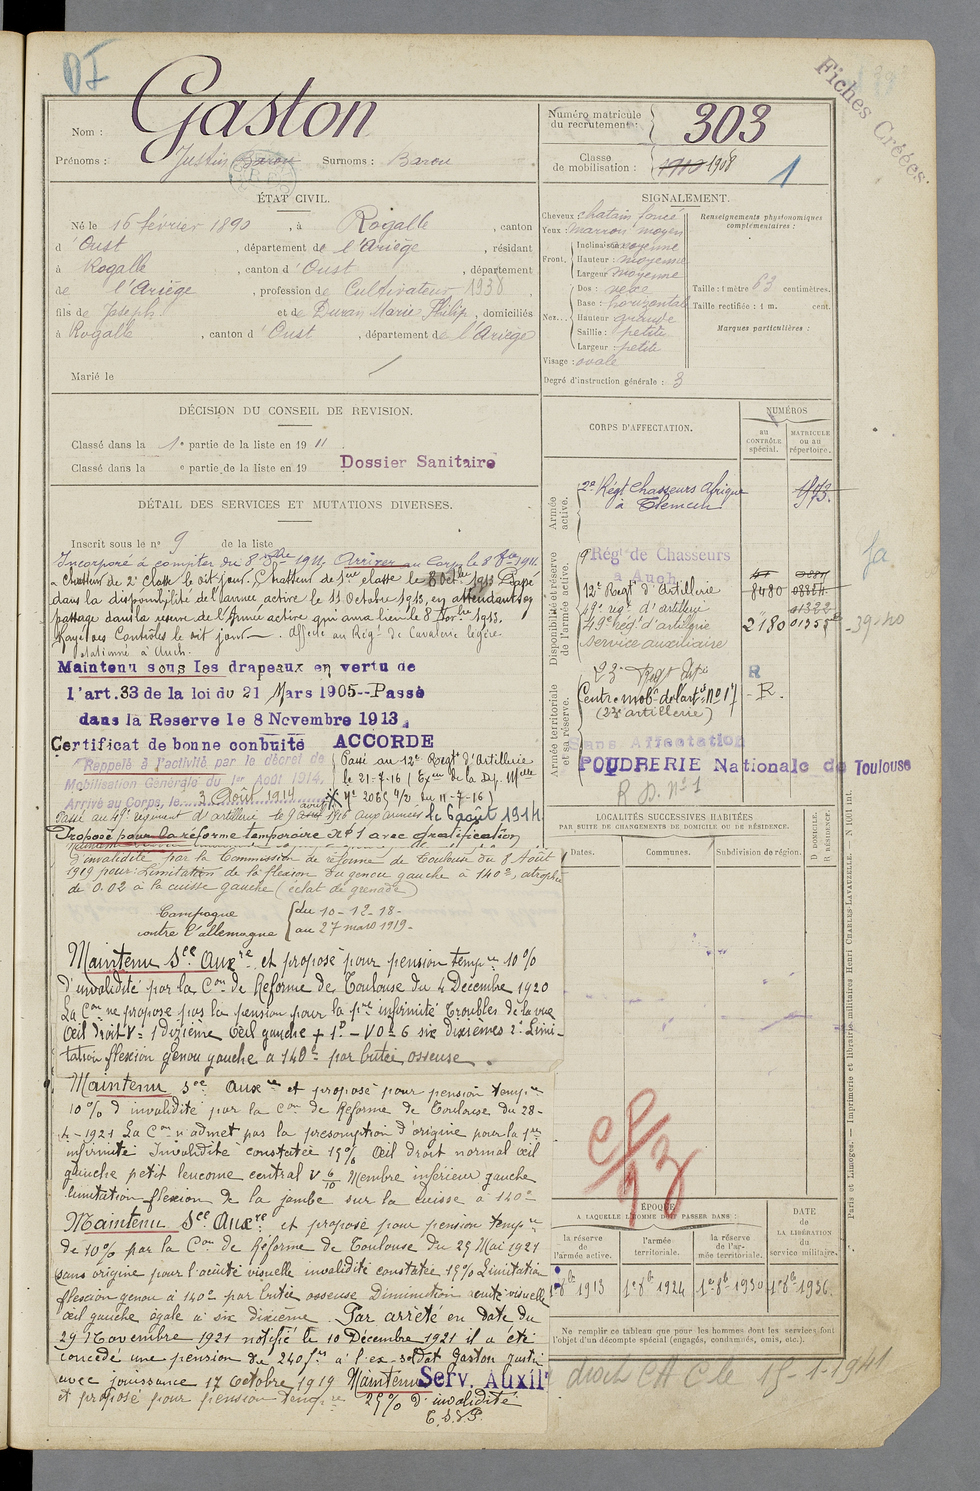 DI
Fiches Créées
Nom : Gaston
Prénoms : Justin Baron Surnoms : Barou
Numéro matricule du recrutement : 303
Classe de mobilisation : 1910 1908
1
ÉTAT CIVIL.
Né le 16 février 1890, à Rogalle, canton
d'Oust, département de l'Ariège, résidant
à Rogalle, canton d'Oust, département
de l'Ariège, profession de Cultivateur 1938
fils de Joseph et de Duran Marie Philip, domiciliés
à Rogalle, canton d'Oust, département de l'Ariège
Marié le
SIGNALEMENT.
Cheveux : chatain foncé
Yeux : marrons moyen
Front, Inclinaison moyenne
Hauteur : moyenne
Largeur moyenne
Nez... Dos : vexe
Base : horizontale
Hauteur grande
Saillie : petite
Largeur : petite
Visage : ovale
Degré d'instruction générale : 3
Renseignements physionomiques complémentaires :
Taille : 1 mètre 63 centimètres.
Taille rectifiée : 1 m. cent.
Marques particulières :
DÉCISION DU CONSEIL DE REVISION.
Classé dans la 1e partie de la liste en 1911.
Classé dans la e partie de la liste en 19
Dossier Sanitaire
DÉTAIL DES SERVICES ET MUTATIONS DIVERSES.
Inscrit sous le n° 9 de la liste
Incorporé à compter du 8 8bre 1911. Arrivé au corps le 8 8bre 1911.
Chasseur de 2e classe le dit jour. Chasseur de 1ère classe le 8 Oct. 1913 Passé
dans la disponibilité de l'armée active le 11 Octobre 1913, en attendant son
passage dans la réserve de l'Armée active qui aura lieu le 8 9bre 1913.
Rayé des Contrôles le dit jour. Affecté au Rég. de Cavalerie légère
stationné à Auch.
Maintenu sous les drapeaux en vertu de
l'art. 33 de la loi du 21 Mars 1905--Passé
dans la Reserve le 8 Novembre 1913.
Certificat de bonne conduite ACCORDE
Rappelé à l'activité par le décret de
Mobilisation Générale du 1er Août 1914.
Arrivé au Corps, le 3 Août 1914
Passé au 12e Regt d'Artillerie
le 21-7-16
Passé au 49e régiment d'artillerie le 9 avril 1916 aux armées le 6 août 1914
Proposé pour la réforme temporaire N°1 avec gratification
d'invalidité par la Commission de réforme de Toulouse du 8 Août
1919 pour : Limitation de la flexion du genou gauche à 140°, atrophie
de 0.02 à la cuisse gauche (éclat de grenade)
Campagne contre l'allemagne
du 10-12-18-
au 27 mars 1919-
Maintenu Sce Auxre et proposé pour pension tempre 10%
d'invalidité par la Con de Réforme de Toulouse du 4 Décembre 1920
La Con ne propose pas la pension pour la 1re infirmité Troubles de la vue
Œil droit V = 1 dixième Œil gauche + 1D - VO = 6 six dixièmes 2° Limi-
tation flexion genou gauche à 140° par butée osseuse.
Maintenu Sce Auxre et proposé pour pension tempre
10% d'invalidité par la Con de Réforme de Toulouse du 28-
4-1921 La Con n'admet pas la présomption d'origine pour la 1re
infirmité Invalidité constatée 15% Œil droit normal œil
gauche petit leucome central V 6/10 Membre inférieur gauche
limitation flexion de la jambe sur la cuisse à 140°
Maintenu Sce Auxre et proposé pour pension tempre
de 10% par la Con de Réforme de Toulouse du 25 Mai 1921
sans origine pour l'acuité visuelle invalidité constatée 15% Limitation
flexion genou à 140° par butée osseuse Diminution acuité visuelle
œil gauche égale à six dixième. Par arrêté en date du
29 Novembre 1921 notifié le 10 Décembre 1921 il a été
concédé une pension de 240 frs à l'ex-soldat Gaston Justin
avec jouissance 17 Octobre 1919 Maintenu Serv. Auxilre
et proposé pour pension tempre 25% d'invalidité
C.D.S.P.
CORPS D'AFFECTATION.
NUMÉROS
au CONTRÔLE spécial.
MATRICULE ou au répertoire.
Armée active.
2e Régt Chasseurs Afrique
à Tlemcen
973
Disponibilité et réserve de l'armée active.
9e Régt de Chasseurs
à Auch
12e Regt d'Artillerie 8480
49e regt d'artillerie 01322
49e rég. d'artillerie 2180 01355
Service auxiliaire
Armée territoriale et sa réserve.
23e Regt Arti
R
Centre mobn de l'art. n° 17 - R.
(23e artillerie)
Sans Affectation
POUDRERIE Nationale de Toulouse
R.P. N° 1
LOCALITÉS SUCCESSIVES HABITÉES
PAR SUITE DE CHANGEMENTS DE DOMICILE OU DE RÉSIDENCE.
Dates.
Communes.
Subdivision de région.
D DOMICILE.
R RÉSIDENCE.
ÉPOQUE
A LAQUELLE L'HOMME DOIT PASSER DANS :
la réserve de l'armée active.
l'armée territoriale.
la réserve de l'armée territoriale.
DATE DE LA LIBÉRATION du service militaire.
1er 8bre 1913
1er 8bre 1924
1er 8bre 1930
1er 8bre 1936
Ne remplir ce tableau que pour les hommes dont les services font
l'objet d'un décompte spécial (engagés, condamnés, omis, etc.).
droit CA C le 15-1-1941
Paris et Limoges. — Imprimerie et librairie militaires Henri CHARLES-LAVAUZELLE. — N° 1001 int.